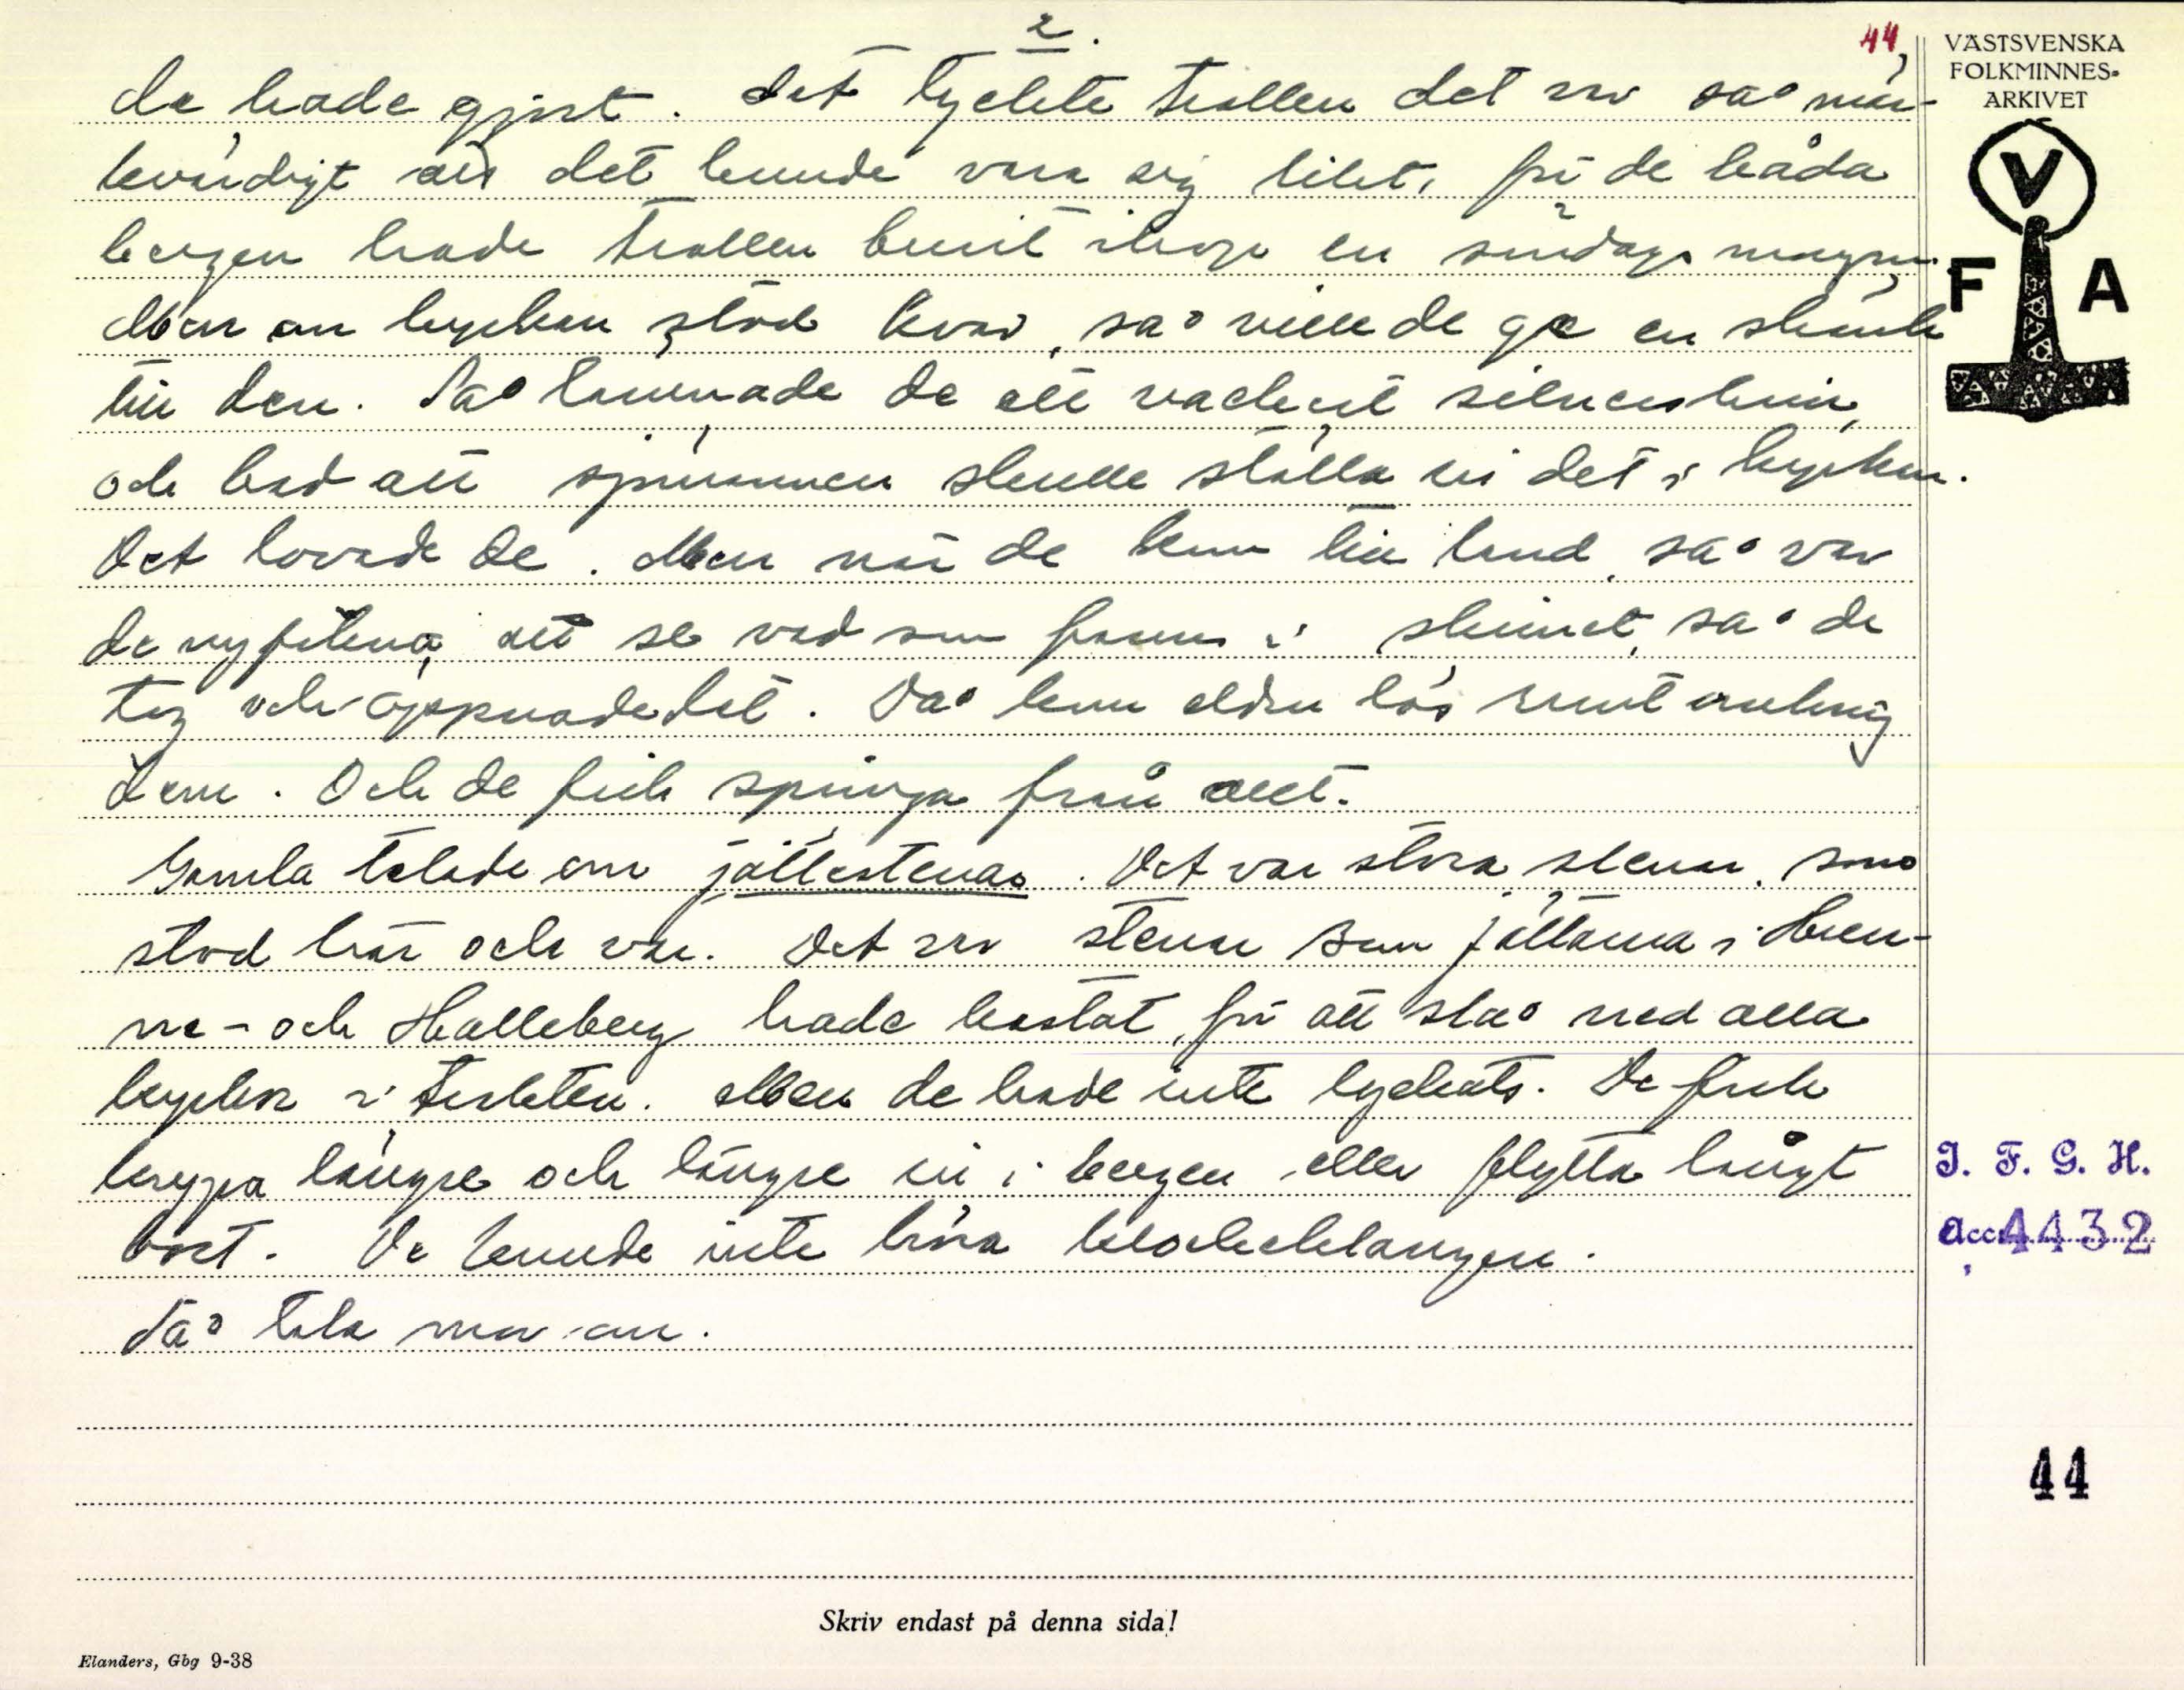 2.
44,
de hade gjort. Det tyckte trollen det var så mär-
kvärdigt att det kunde vara sig likt, för de båda
bergen hade trollen burit ihop en söndags morgon.
Men om kyrkan stod kvar, så ville de ge en skänk
till den. Så lämnade de ett vackert silverskrin,
och bad att sjömannen skulle ställa in det i kyrkan.
Det lovade de. Men när de kom till land, så var
de nyfikna att se vad som fanns i skrinet, så de
tog och öppnade det. Då kom elden lös runt omkring
dem. Och de fick springa från allt.
Gamla talade om jättestenar. Det var stora stenar, som
stod här och var. Det var stenar som jättarna i Hun-
ne- och Halleberg hade kastat, för att slå ned alla
kyrkor i trakten. Men de hade inte lyckats. De fick
krypa längre och längre in i bergen eller flytta långt
bort. De kunde inte höra klockeklangen.
Så tala mor om.
VÄSTSVENSKA
FOLKMINNES-
ARKIVET
V
F A
I. F. G. H.
Acc. 4432
44
Skriv endast på denna sida!
Elanders, Gbg 9-38